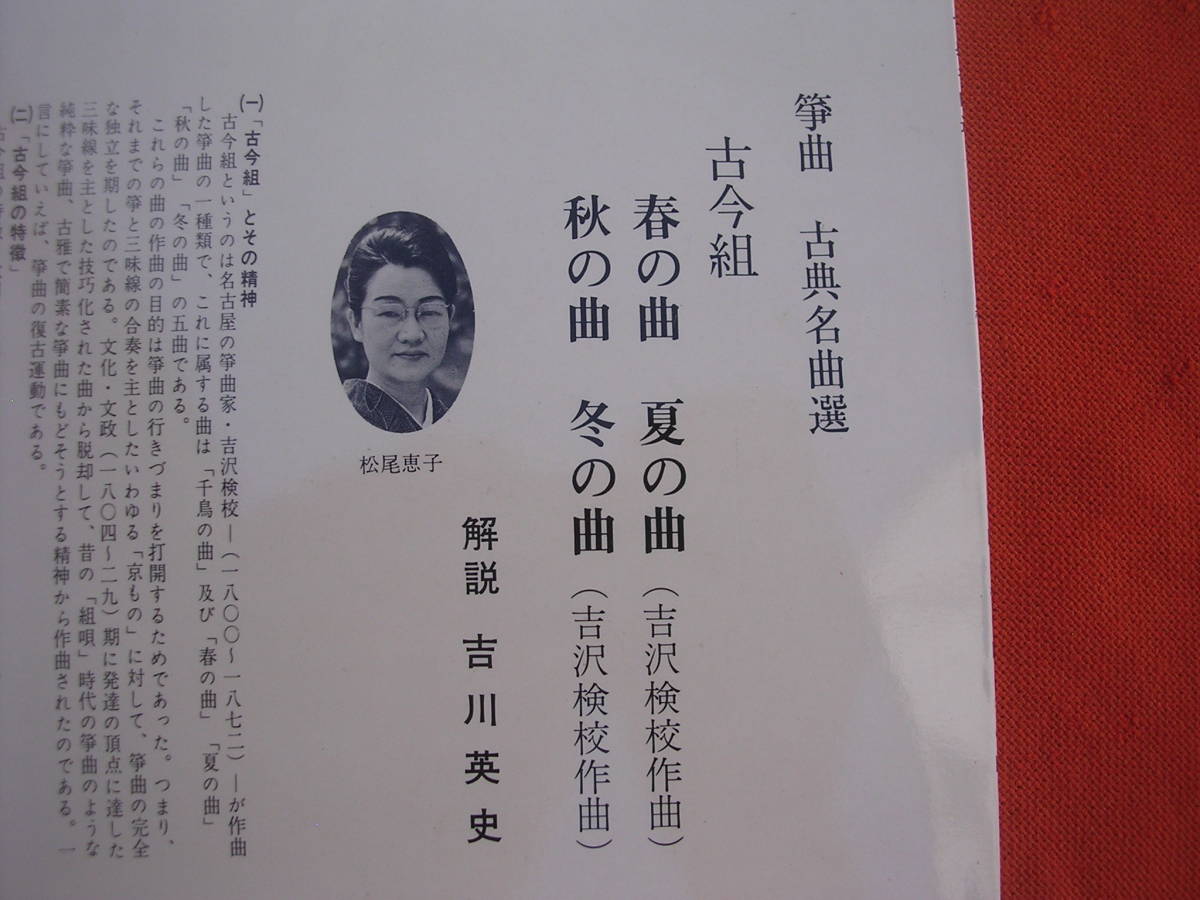 箏曲　古典名曲選
古今組
春の曲　夏の曲（吉沢検校作曲）
秋の曲　冬の曲（吉沢検校作曲）
解説　吉川英史
松尾恵子
㈠「古今組」とその精神
古今組というのは名古屋の箏曲家・吉沢検校―（一八〇〇～一八七二）―が作曲
した箏曲の一種類で、これに属する曲は「千鳥の曲」及び「春の曲」「夏の曲」
「秋の曲」「冬の曲」の五曲である。
これらの曲の作曲の目的は箏曲の行きづまりを打開するためであった。つまり、
それまでの箏と三味線の合奏を主としたいわゆる「京もの」に対して、箏曲の完全
な独立を期したのである。文化・文政（一八〇四～二九）期に発達の頂点に達した
三味線を主とした技巧化された曲から脱却して、昔の「組唄」時代の箏曲のような
純粋な箏曲、古雅で簡素な箏曲にもどそうとする精神から作曲されたのである。一
言にしていえば、箏曲の復古運動である。
㈡「古今組の特徴」